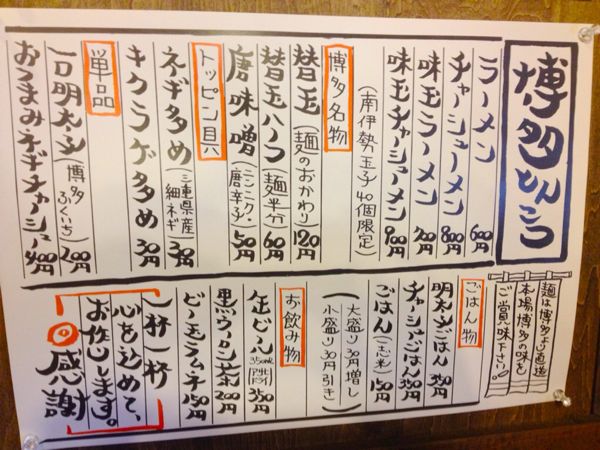 博多とんこつ
ラーメン 600円
チャーシューメン 800円
味玉ラーメン 700円
味玉チャーシューメン 900円
(南伊勢玉子40個限定)
博多名物
替玉(麺のおかわり) 120円
替玉ハーフ(麺半分) 60円
唐味噌(ニンニク・唐辛子) 50円
トッピン具
ネギ多め(三重県産細ネギ) 30円
キクラゲ多め 30円
単品
一口明太子(博多ふくいち) 200円
おつまみネギチャーシュー 400円
麺は博多より直送
本場博多の味を
ご賞味下さい。
ごはん物
明太ごはん 350円
チャーシューごはん 350円
ごはん(志米) 150円
(大盛り30円増し
小盛り30円引き)
お飲み物
缶ビール 350ml アサヒドライ 350円
黒ウーロン茶 200円
ビー玉ラムネ 150円
一杯一杯
心を込めて、
お作りします。
感謝